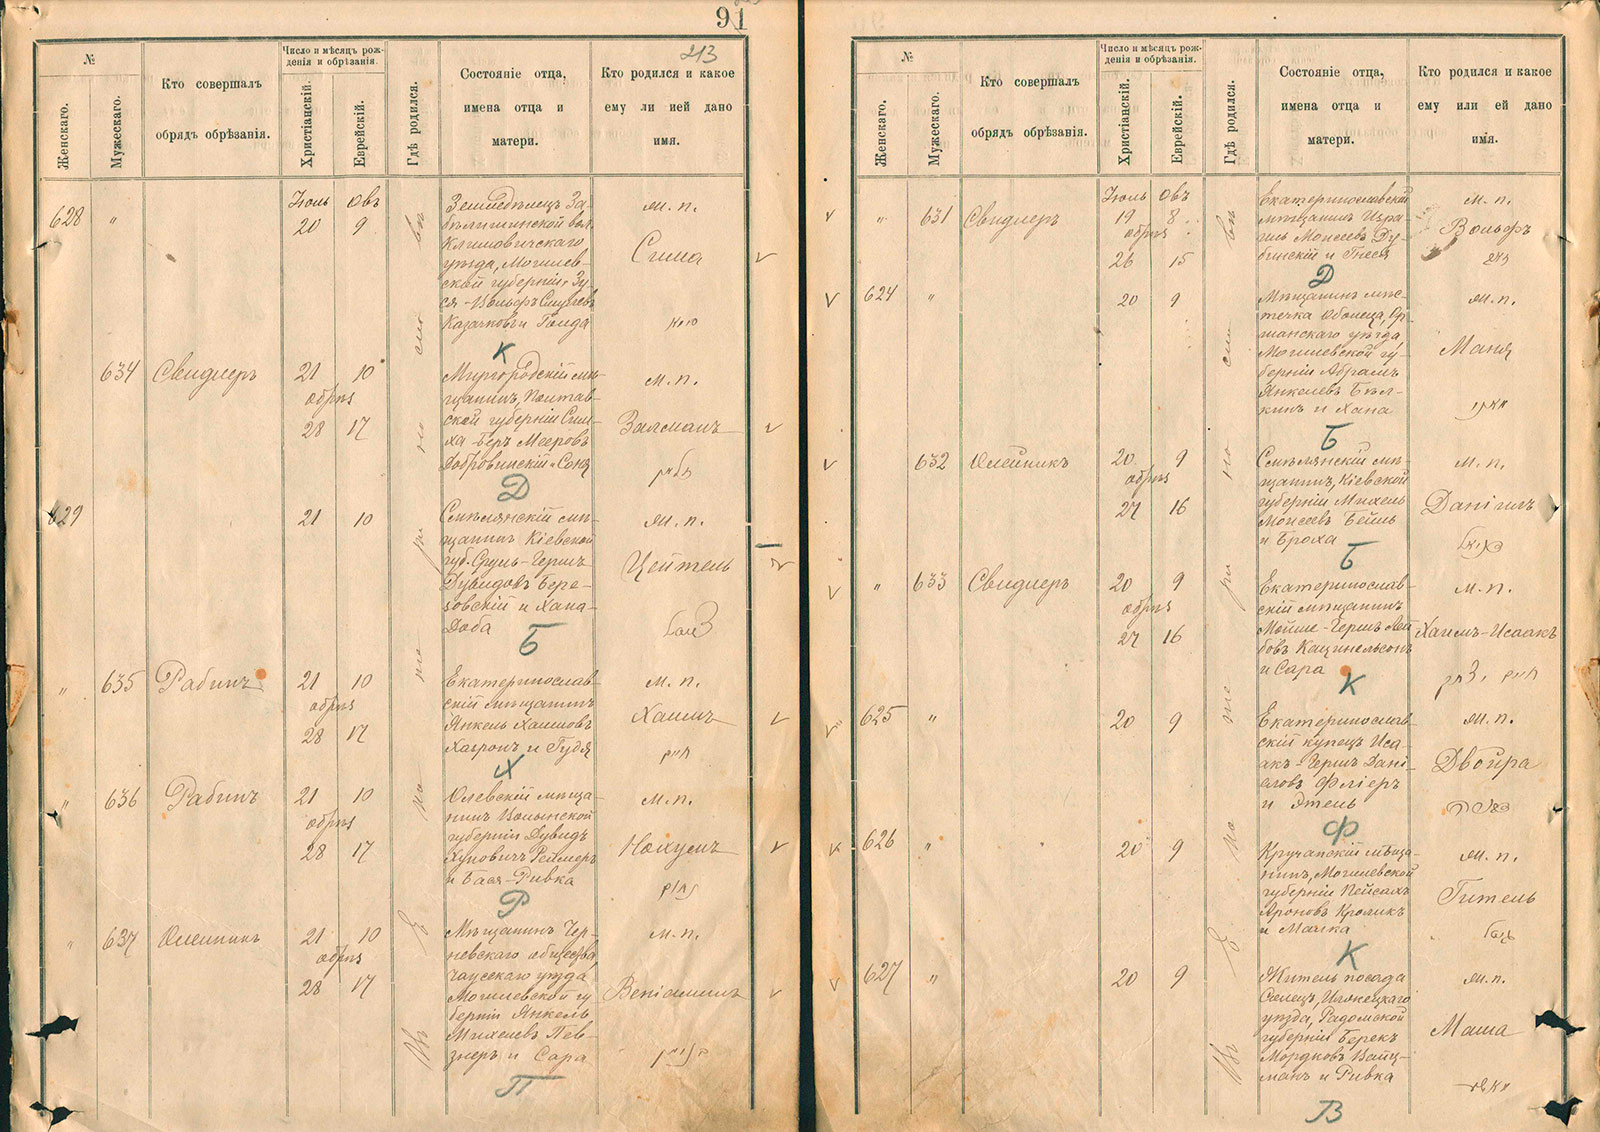 91
213
№
Женскаго.
Мужескаго.
Кто совершалъ
обрядъ обрѣзанія.
Число и мѣсяцъ рож-
денія и обрѣзанія.
Христіанскій.
Еврейскій.
Гдѣ родился.
Состояніе отца,
имена отца и
матери.
Кто родился и какое
ему ли ией дано
имя.
628
"
Іюль Овъ
20 9
Земледѣлецъ За-
Климовичскаго
уѣзда, Могилев-
ской губерніи, Зу-
Казачковъ и Голда
ж. п.
Сима
К
634
Свидлеръ
21 10
обрѣз
28 17
Миргородскій мѣ-
щанинъ, Полтав-
ской губерніи Сим-
ха-Беръ Мееровъ
Добровинскій и Соня
м. п.
Залманъ
זלמן
Д
629
21 10
Смѣлянскій мѣ-
щанинъ Кіевской
губ. Сруль-Гершъ
Дувидовъ Бере-
зовскій и Хана-
Доба
ж. п.
Цейтель
Б
"
635
Рабинъ
21 10
обрѣз
28 17
Екатеринослав-
скій мѣщанинъ
Янкель Хаимовъ
и Гудя
м. п.
Хаимъ
חיים
Х
"
636
Рабинъ
21 10
обрѣз
28 17
Олевскій мѣща-
нинъ Волынской
губерніи Дувидъ
и Бася-Ривка
м. п.
Нохумъ
נחום
Р
"
637
Олейникъ
21 10
обрѣз
28 17
Мѣщанинъ Чер-
невскаго общества,
Чаусскаго уѣзда
Могилевской гу-
берніи Янкель
Михелевъ Пев-
знеръ и Сара
м. п.
Веніаминъ
בנימין
П
№
Женскаго.
Мужескаго.
Кто совершалъ
обрядъ обрѣзанія.
Число и мѣсяцъ рож-
денія и обрѣзанія.
Христіанскій.
Еврейскій.
Гдѣ родился.
Состояніе отца,
имена отца и
матери.
Кто родился и какое
ему или ей дано
имя.
"
631
Свидлеръ
Іюль Овъ
19 8
обрѣз
26 15
Екатеринославскій
мѣщанинъ Изра-
иль Моисеевъ Ду-
бинскій и Гнеся
м. п.
Вольфъ
Д
624
"
20 9
Мѣщанинъ мѣс-
течка Оболца, Ор-
шанскаго уѣзда,
Могилевской гу-
берніи Абрамъ
Янкелевъ Бѣл-
кинъ и Хана
ж. п.
Маня
Б
632
Олейникъ
20 9
обрѣз
27 16
Смѣлянскій мѣ-
щанинъ, Кіевской
губерніи Михель
Моисеевъ Бейль
и Броха
м. п.
Даніилъ
דניאל
Б
"
633
Свидлеръ
20 9
обрѣз
27 16
Екатеринослав-
скій мѣщанинъ
Мойше-Гершъ Лей-
бовъ Кацнельсонъ
и Сара
м. п.
Хаимъ-Исаакъ
חיים יצחק
К
625
"
20 9
Екатеринослав-
скій купецъ Иса-
акъ-Гершъ Дані-
еловъ Фліеръ
и Этель
ж. п.
Двойра
Ф
626
"
20 9
нинъ, Могилевской
губерніи Пейсахъ
Ароновъ Кроликъ
и Малка
ж. п.
Гитель
К
627
"
20 9
Житель посада
уѣзда, Радомской
губерніи Берекъ
Мордковъ Вайц-
манъ и Ривка
ж. п.
Маша
В